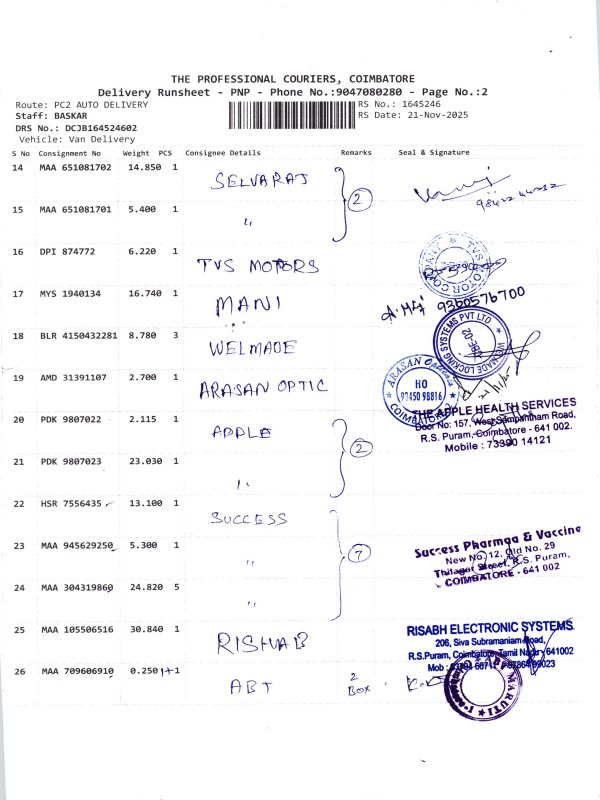 THE PROFESSIONAL COURIERS, COIMBATORE
Delivery Runsheet - PNP - Phone No.:9047080280 - Page No.:2
Route: PC2 AUTO DELIVERY RS No.: 1645246
Staff: BASKAR RS Date: 21-Nov-2025
DRS No.: DCJB164524602
Vehicle: Van Delivery
S No Consignment No Weight PCS Consignee Details Remarks Seal & Signature
14 MAA 651081702 14.850 1 SELVARAJ 2
15 MAA 651081701 5.400 1 "
16 DPI 874772 6.220 1 TVS MOTORS
TVS MOTOR COMPANY
17 MYS 1940134 16.740 1 MANI 9360576700
18 BLR 4150432281 8.780 3 WELMADE
WELMADE LOCKING SYSTEMS PVT LTD
CBE-02
19 AMD 31391107 2.700 1 ARASAN OPTIC
ARASAN Opticals
HO
93450 98816
COIMBATORE
20 PDK 9807022 2.115 1 APPLE 2
THE APPLE HEALTH SERVICES
Door No: 157, West Sampantham Road,
R.S. Puram, Coimbatore - 641 002.
Mobile : 73390 14121
21 PDK 9807023 23.030 1 "
22 HSR 7556435 13.100 1 SUCCESS 7
23 MAA 945629250 5.300 1 "
Success Pharmaa & Vaccine
New No. 12, Old No. 29
Thilagar Street, R.S. Puram,
COIMBATORE - 641 002
24 MAA 304319860 24.820 5 "
25 MAA 105506516 30.840 1 RISHAB
RISABH ELECTRONIC SYSTEMS
206, Siva Subramaniam Road,
R.S.Puram, Coimbatore, Tamil Nadu - 641002
Mob :
26 MAA 709606910 0.250 1+1 ABT 2 BOX
MARUTI